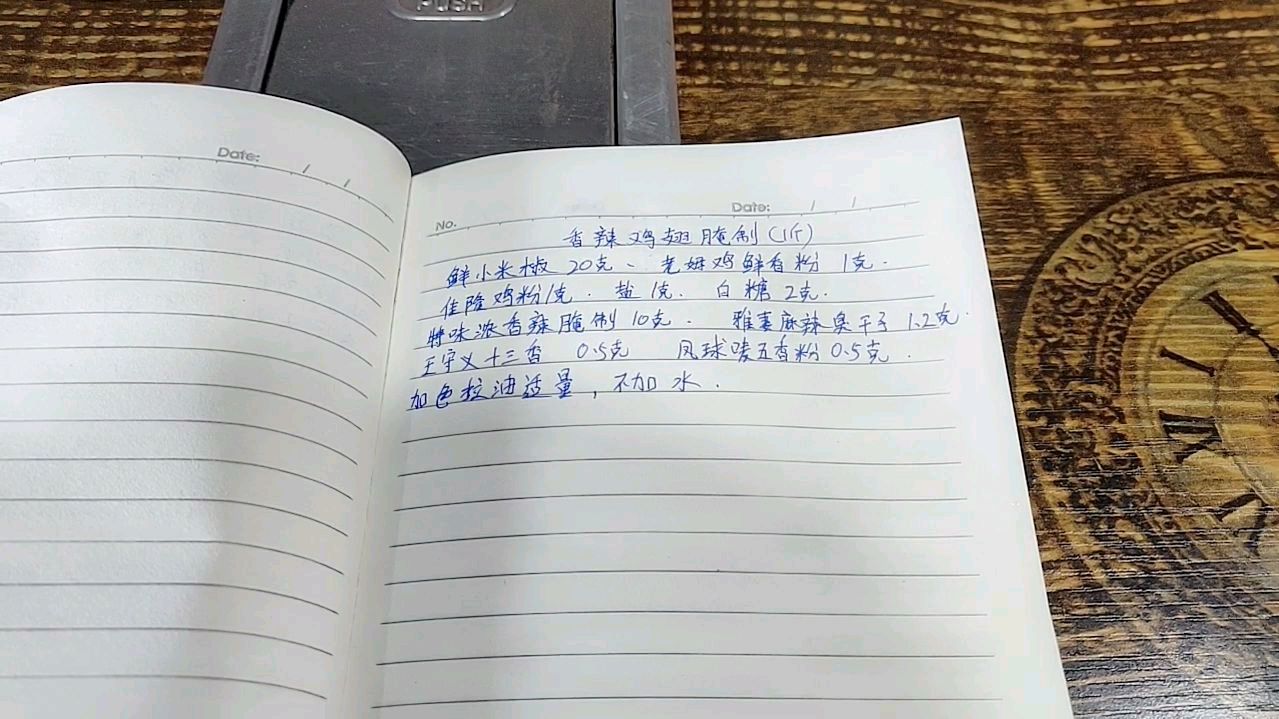 PUSH
Date: / /
No. Date: / /
香辣鸡翅腌制(1斤)
鲜小米椒 20克、老姆鸡鲜香粉 1克.
佳隆鸡粉1克. 盐1克. 白糖 2克.
特味浓香辣腌制 10克. 雅素麻辣臭干子 1.2克.
王守义十三香 0.5克 凤球唛五香粉 0.5克.
加色拉油适量,不加水.
VII